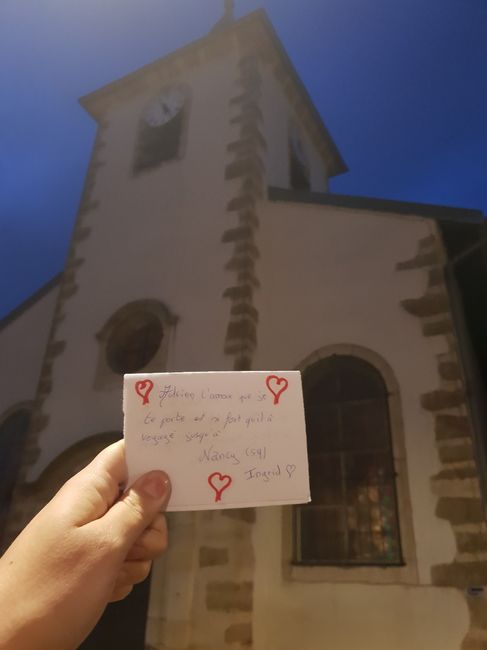 Adrien l'amour que je
te porte est si fort qu'il a
voyagé jusqu'à
Nancy (54)
Ingrid ♡